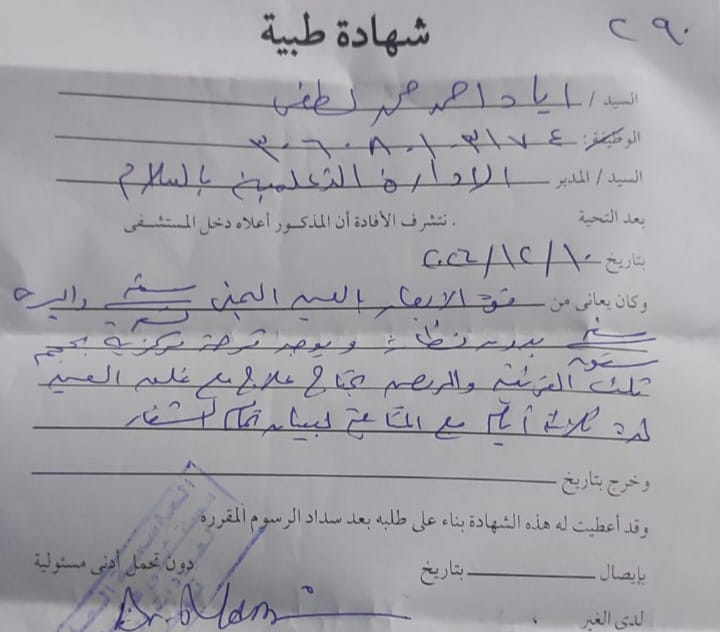 ٢٩٠
شهادة طبية
السيد / اياد احمد محمد لطفى
الوظيفة: ٣٠٦٠٨٠١٠٣١٧٤
السيد / المدير الادارة التعلمية بالسلام
بعد التحية
نتشرف الأفادة أن المذكور أعلاه دخل المستشفى
بتاريخ ١٠/١٢/
وكان يعانى من قوة الابصار بالعين اليمنى ستة واليسرى
ستة بدون نظارة ويوجد قرحة مركزية بحجم
ثلث القرنية والمريض يحتاج علاج مع غلق العين
لمدة ثلاثة أيام مع المتابعة لبيان تمام الشفاء
وخرج بتاريخ
وقد أعطيت له هذه الشهادة بناء على طلبه بعد سداد الرسوم المقرره
بإيصال بتاريخ دون تحمل أدنى مسئولية
لدى الغير
Dr.